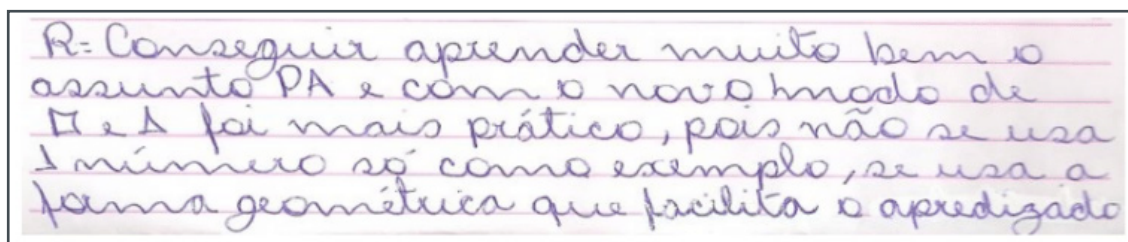 R= Conseguir aprender muito bem o
assunto PA e com o novo modo de
□ e Δ foi mais prático, pois não se usa
1 número só como exemplo, se usa a
forma geométrica que facilita o apredizado